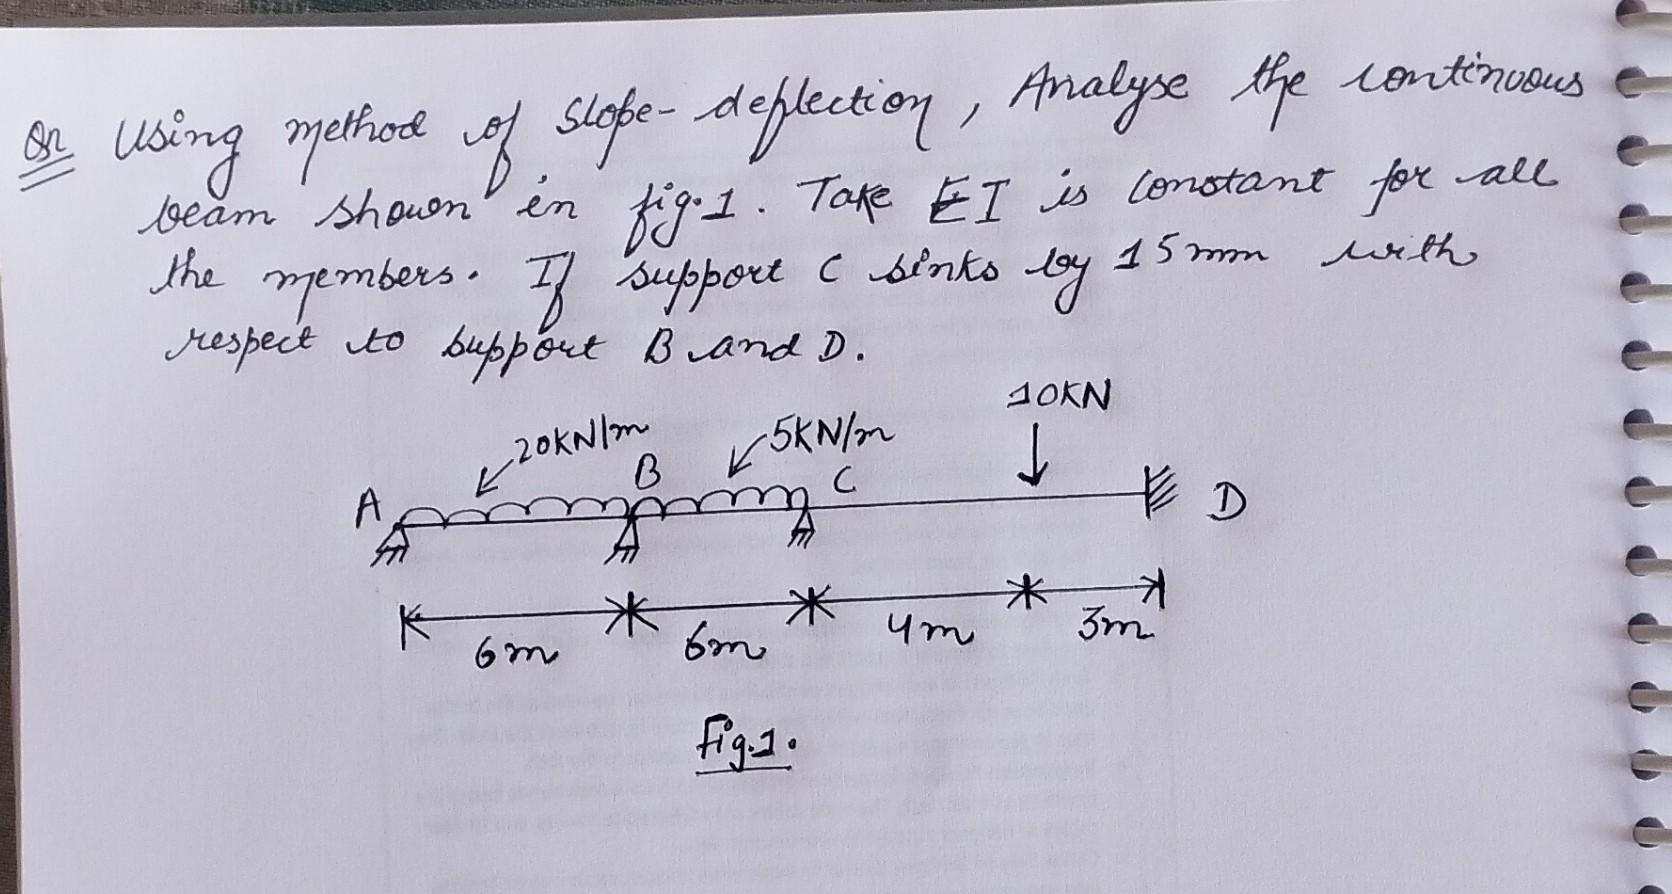 Qn Using method of slope-deflection, Analyse the continuous
beam shown in fig.1. Take EI is constant for all
the members. If support C sinks by 15mm with
respect to support B and D.
10KN
20KN/m
5KN/m
A B C D
6m 6m 4m 3m
Fig.1.